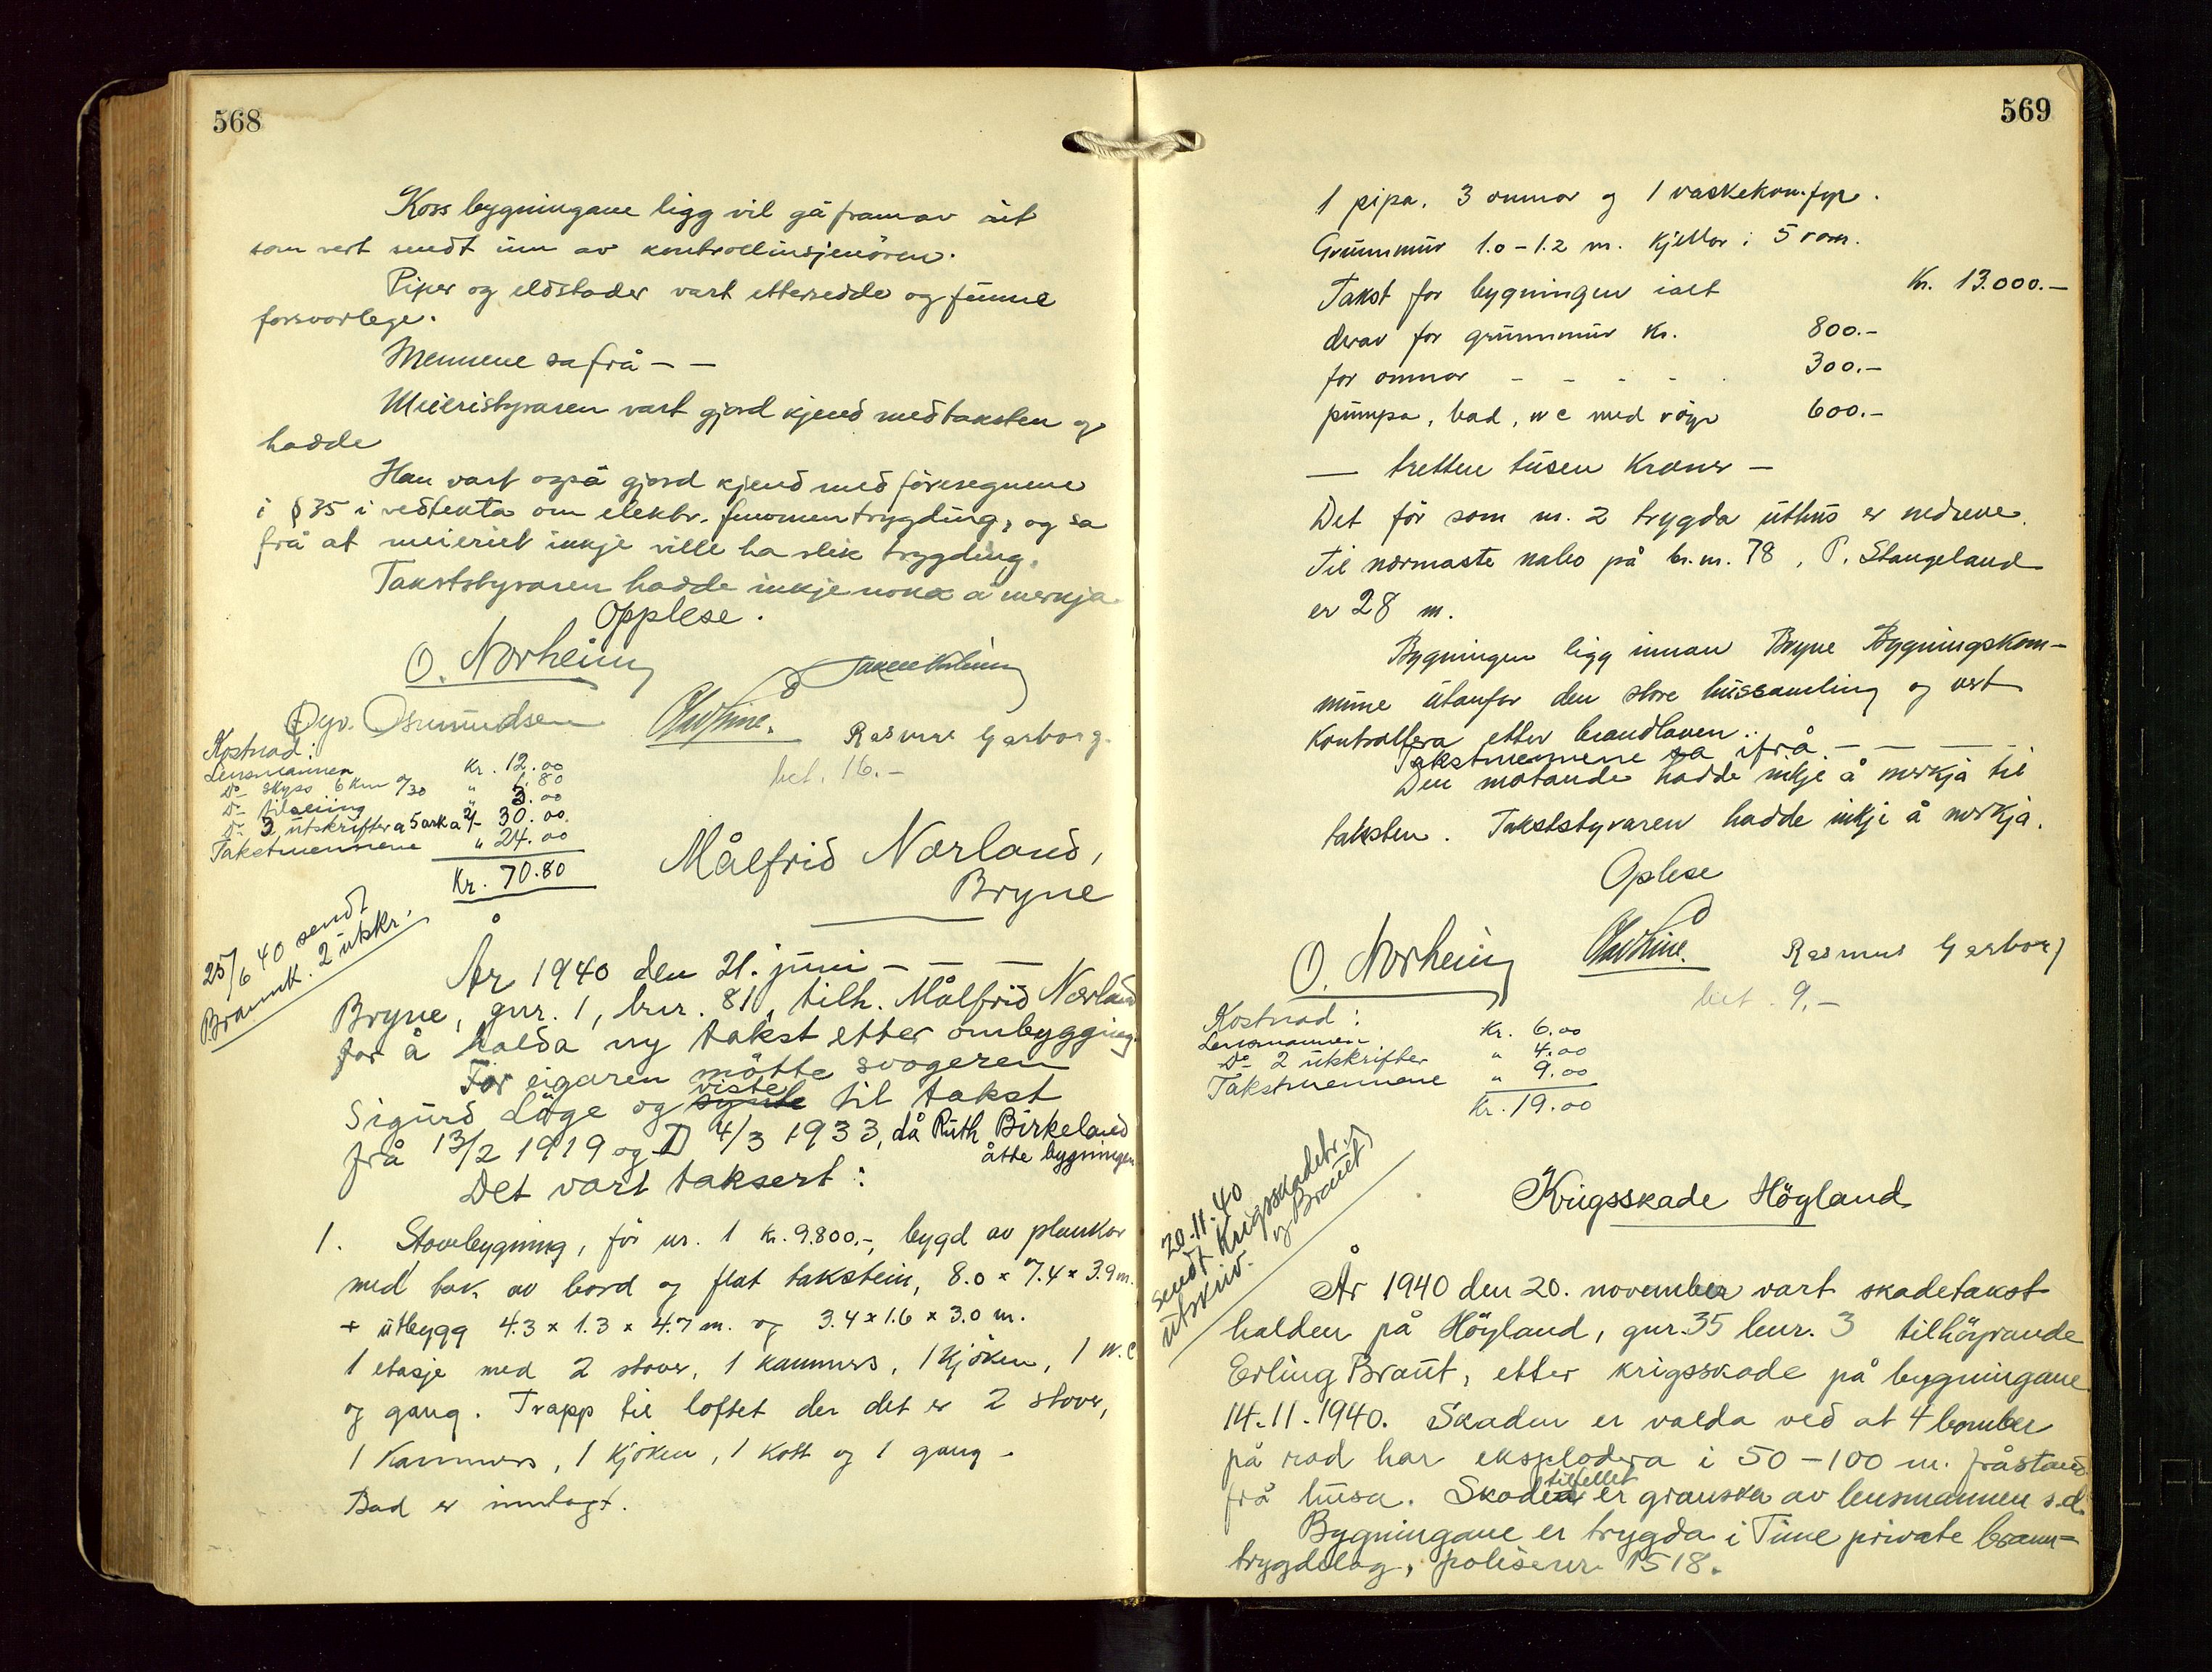 568
Koss bygningane ligg vil gå fram av
som vert sendt inn av kontrollinsjenören.
Piper og eldstader vart ettersedde og funne
forsvarlege.
Mennene sa frå — —
Meieristyraren vart gjord kjend med taksten og
hadde
Han vart også gjord kjend med föresegnene
i § 35 i vedtekta om elektr. fenomentrygding, og sa
frå at meieriet inkje ville ha slik trygding.
Takststyraren hadde inkje noko å merkja.
Opplese.
O. Norheim
Øyv. Osmundsen
Rasmus Garborg.
bet. 16.-
Kostnad:
Lensmannen Kr. 12.00
Do skyss 6 km a/30 " 1.80
Do tilseiing " 3.00
Do 3 utskrifter a 5 ark a 2/- 30.00.
Takstmennene " 24.00
Kr. 70.80
25/6 40 sendt
Brannk. 2 utskr.
Målfrid Nærland,
Bryne
År 1940 den 21. juni — — —
Bryne, gnr. 1, bnr. 81, tilh. Målfrid Nærland
for å halda ny takst etter ombygging.
For eigaren mötte svogeren
Sigurd Löge og synte viste til takst
frå 13/2 1919 og D 4/3 1933, då Ruth Birkeland
åtte bygningen
Det vart taksert:
1. Stovebygning, för nr. 1 kr. 9.800.-, bygd av plankar
med tak av bord og flat takstein, 8.0 x 7.4 x 3.9 m.
+ utbygg 4.3 x 1.3 x 4.7 m. og 3.4 x 1.6 x 3.0 m.
1 etasje med 2 stover, 1 kammers, 1 kjöken, 1 w.c
og gang. Trapp til loftet der det er 2 stover,
1 kammers, 1 kjöken, 1 kott og 1 gang.
Bad er innlagt.
569
1 pipa, 3 omnar og 1 vaskekom.fyr.
Grunnmur 1.0 - 1.2 m. Kjellar i 5 rom.
Takst for bygningen ialt Kr. 13.000.—
derav for grunnmur Kr. 800.-
for omnar - - - - 300.-
pumpa, bad, wc med röyr 600.-
— tretten tusen kroner —
Det för som nr. 2 trygda uthus er nedreve.
Til nærmaste nabo på br.nr. 78, P. Stangeland
er 28 m.
Bygningen ligg innan Bryne Bygningskom-
mune utanfor den store hussamling og vert
kontrollera etter brandloven..
Takstmennene sa ifrå — — —
Den møtande hadde inkje å merkja til
taksten. Takststyraren hadde inkje å merkja.
Oplese
O. Norheim
Rasmus Garborg
bet. 9,-
Kostnad:
Lensmannen Kr. 6.00
Do 2 utskrifter " 4.00
Takstmennene " 9.00
Kr. 19.00
20.11.40
sendt Krigsskadetr.
utskriv. og Braut
Krigsskade Höyland
År 1940 den 20. november vart skadetakst
halden på Höyland, gnr. 35 bnr. 3 tilhöyrande
Erling Braut, etter krigsskade på bygningane
14.11.1940. Skaden er valda ved at 4 bomber
på rad har eksplodera i 50 - 100 m. fråstand
frå husa. Skadetilfellet er granska av lensmannen s.d.
Bygningane er trygda i Time private brann-
trygdelag, polisenr. 1518.